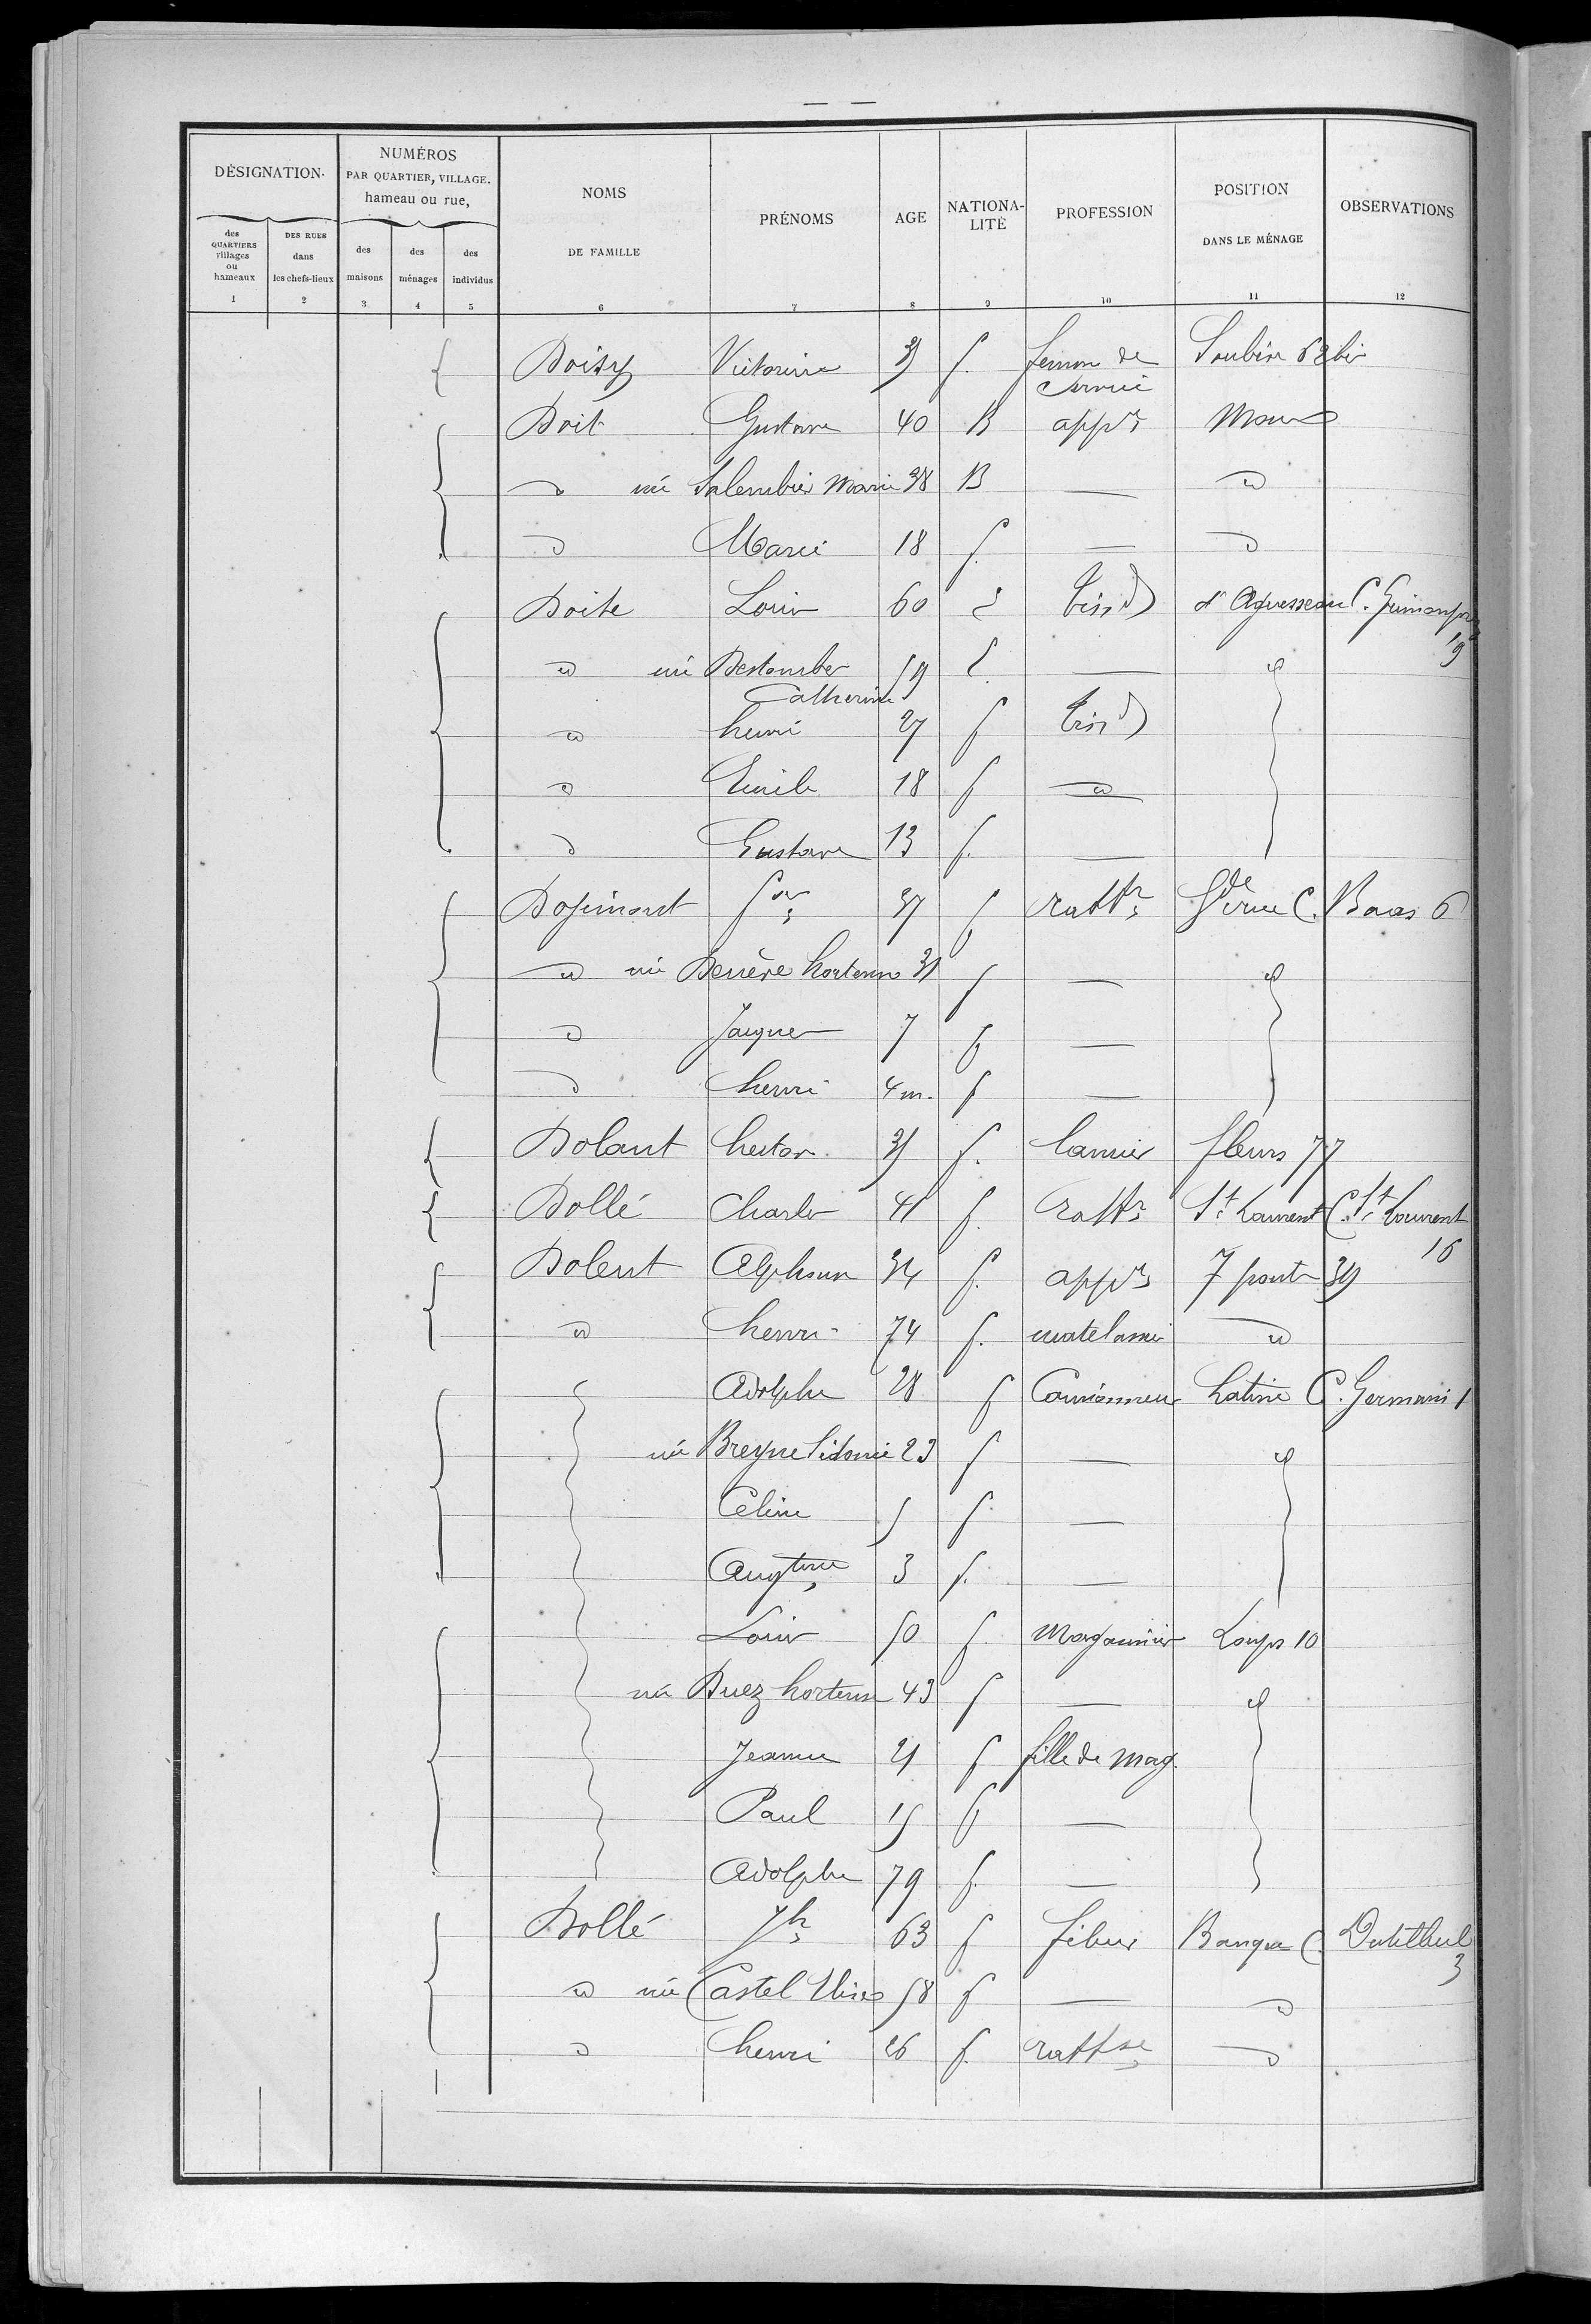 DÉSIGNATION.
NUMÉROS
PAR QUARTIER, VILLAGE.
hameau ou rue,
NOMS
DE FAMILLE
PRÉNOMS
AGE
NATIONA-
LITÉ
PROFESSION
POSITION
DANS LE MÉNAGE
OBSERVATIONS
des
QUARTIERS
villages
ou
hameaux
DES RUES
dans
les chefs-lieux
des
maisons
des
ménages
des
individus
1 2 3 4 5 6 7 8 9 10 11 12
Doisy Victorine f. femme de
Doit Gustave 40 B app
née Salembier Marie 38 B —
Marie 18 f. —
Doite Louis 60 tis d d'Aguesseau C. Grimonprez
19
née Destombes 59 f. —
Catherine
henri 27 f tis d
Emile 18 f
Gustave 13 f. —
37 f ratt C. Baas 6
née hortense 31 f —
Jacques 7 f —
henri 4 m. f —
Dolant hector f. lamier fleurs 77
Dollé Charles 41 f. ratt St Laurent C. St Laurent
16
Dolent Alphonse 34 f. app 7 ponts 39
henri 74 f. matelassier
Adolphe 28 f Camionneur Latine C. Germain 1
née Breyne Sidonie 23 f —
Céline 5 f —
Augtine 3 f. —
Louis 50 f. Magasinier Longs 10
née Duez hortense 43 f —
Jeanne 21 f fille de mag.
Paul 15 f —
Adolphe 79 f. —
Dollé Jh 63 f fileur Banque C. Dutilleul
3
née Castel 58 f —
henri 26 f. ratt